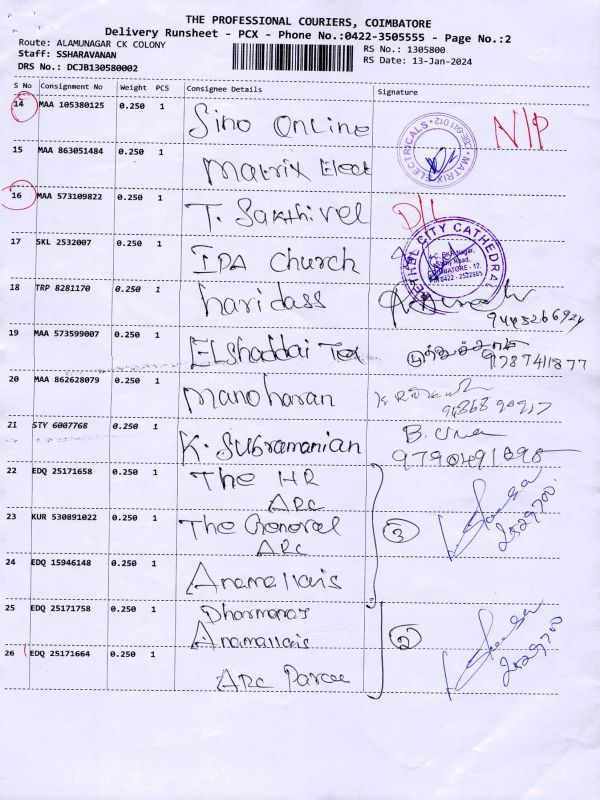 THE PROFESSIONAL COURIERS, COIMBATORE
Delivery Runsheet - PCX - Phone No.:0422-3505555 - Page No.:2
Route: ALAMUNAGAR CK COLONY
RS No.: 1305800
Staff: SSHARAVANAN
RS Date: 13-Jan-2024
DRS No.: DCJB130580002
S No Consignment No Weight PCS Consignee Details Signature
14 MAA 105380125 0.250 1 Sino Online N/P
15 MAA 863051484 0.250 1 Matrix Elect
MATRIX ELECTRICALS
16 MAA 573109822 0.250 1 T. Sakthivel
17 SKL 2532007 0.250 1 IPA Church
BETHEL CITY CATHEDRAL
COIMBATORE - 12.
18 TRP 8281170 0.250 1 haridass
19 MAA 573599007 0.250 1 Elshaddai Tex
முத்துக்குமார்
9787411877
20 MAA 862628079 0.250 1 Manoharan
21 STY 6007768 0.250 1 K. Subramanian
B. Uma
22 EDQ 25171658 0.250 1 The HR
ARC
23 KUR 530891022 0.250 1 The General
ARC
3
2529700
24 EDQ 15946148 0.250 1 Anamallais
25 EDQ 25171758 0.250 1 Dharmaraj
Anamallais
2
2529700
26 EDQ 25171664 0.250 1 ARC Parcel